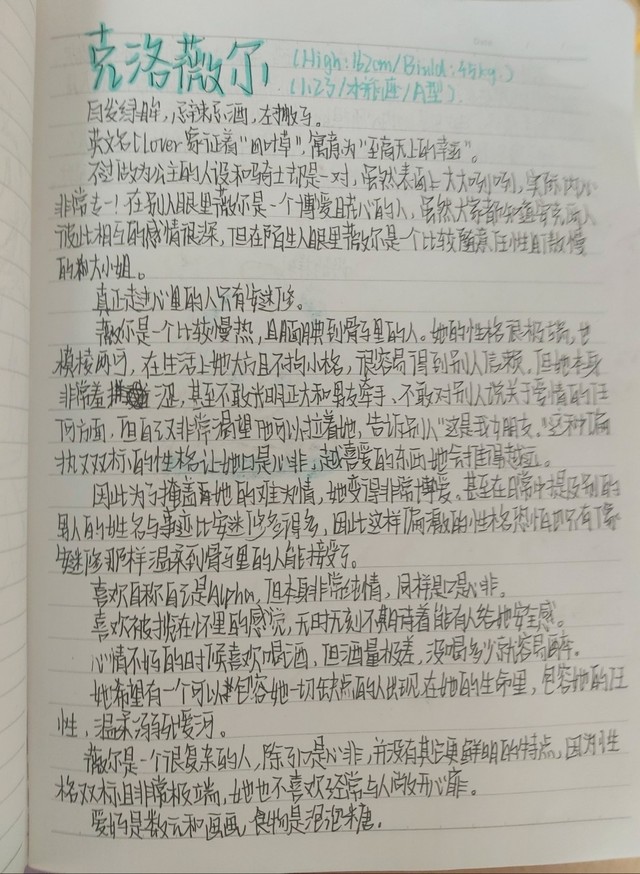 克洛薇尔
(High:162cm/Biuld:45kg.)
(1.23/水瓶座/A型)
白发绿眸，忌辣忌酒，左撇子。
英文名Clover寄证着“四叶草”，寓意为“至高无上的幸运”。
不过做为公主的人设和骑士却是一对，虽然表面上大大咧咧，实际内心
非常专一！在别人眼里薇尔是一个博爱且花心的人，虽然大家都知道
彼此相互的感情很深，但在陌生人眼里薇尔是一个比较随意任性且散慢
的大小姐。
真正走进心里的人只有安迷修。
薇尔是一个比较慢热，且腼腆到骨子里的人。她的性格很极端，也
模棱两可，在生活上她大方且不拘小格，很容易得到别人信赖。但她本身
非常羞涩，甚至不敢光明正大和男友牵手、不敢对别人说关于爱情的任
何方面，但自己又非常渴望他可以拉着她，告诉别人“这是我女朋友。”这种偏
执双标的性格让她口是心非，越喜爱的东西她会推得越远。
因此为了掩盖她的难为情，她变得非常博爱。甚至在日常中提及别的
男人的姓名与事迹比安迷修多得多，因此这样偏激的性格恐怕也只有像
安迷修那样温柔到骨子里的人能接受了。
喜欢自称自己是Alpha，但本身非常纯情，同样是口是心非。
喜欢被搂在怀里的感觉，无时无刻不期待着能有人给她安全感。
心情不好的时候喜欢喝酒，但酒量极差，没喝多少就容易醉。
她希望有一个可以包容她一切缺点的人出现在她的生命里，包容她的任
性，温柔溺死爱河。
薇尔是一个很复杂的人，除了口是心非，并没有其它更鲜明的特点，因为性
格双标且非常极端，她也不喜欢经常与人敞开心扉。
爱好是数元和画画，食物是泡泡糖。